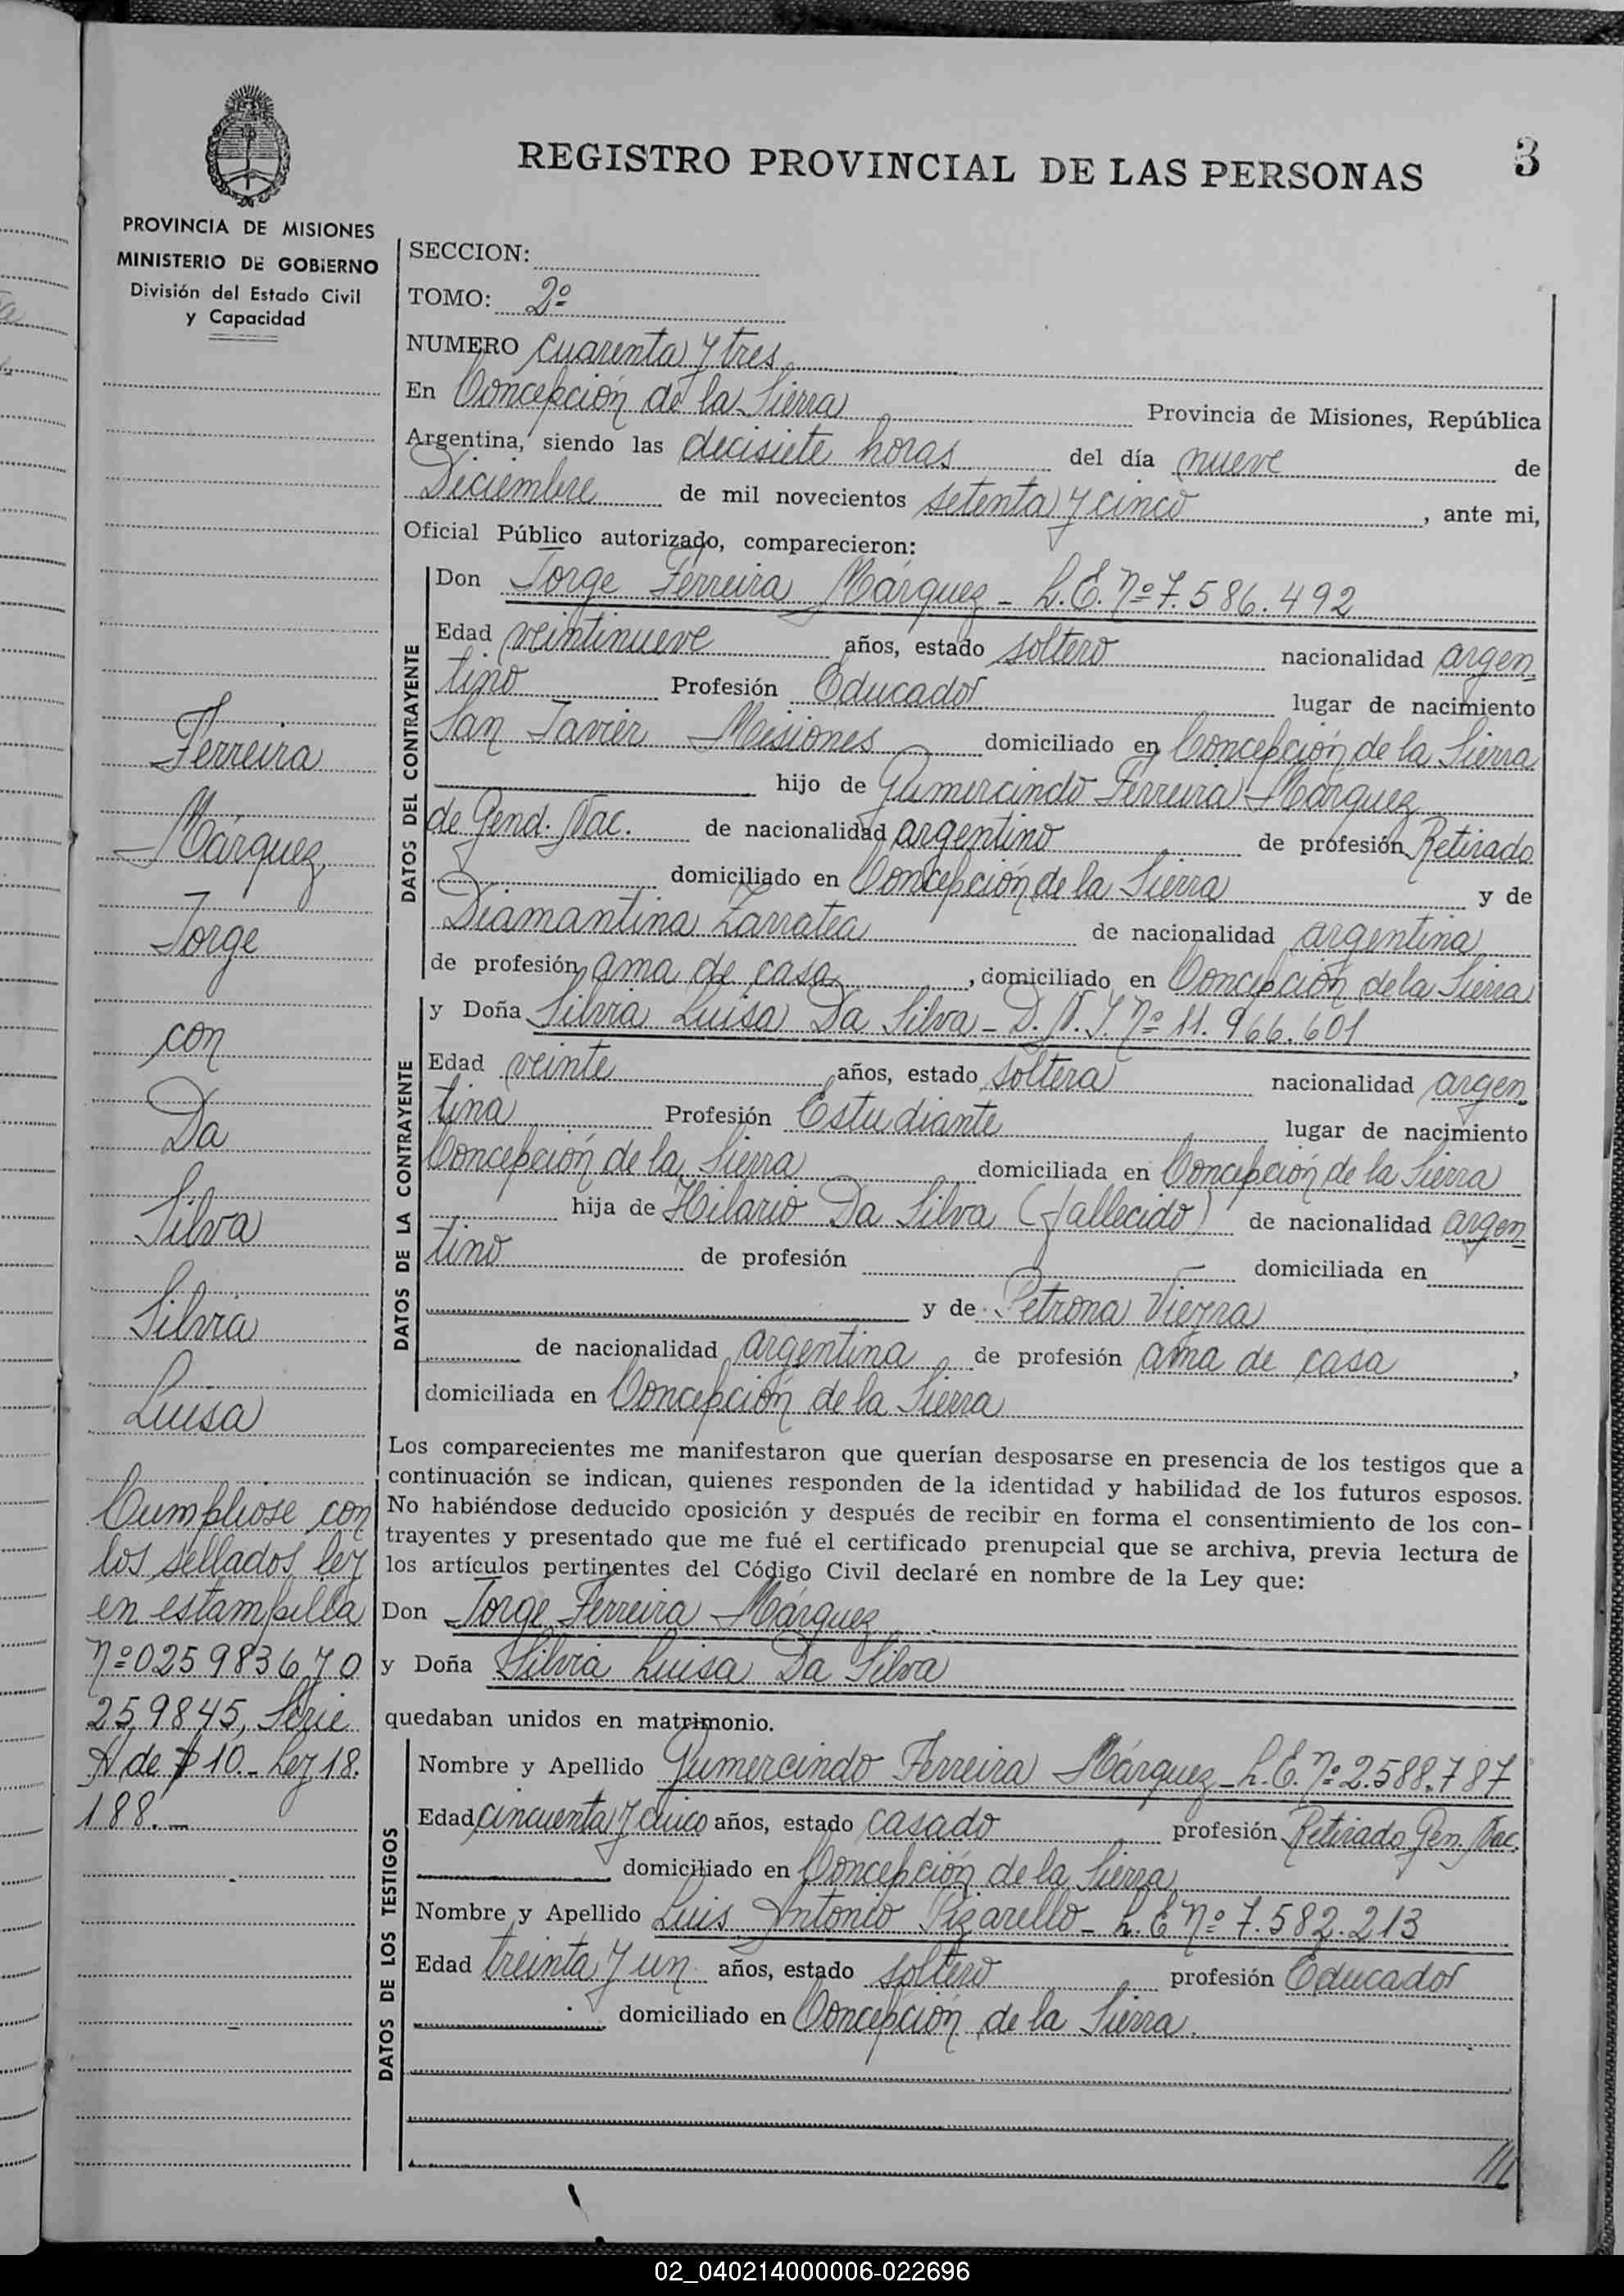 REGISTRO PROVINCIAL DE LAS PERSONAS
3
PROVINCIA DE MISIONES
MINISTERIO DE GOBIERNO
División del Estado Civil
y Capacidad
Ferreira
Márquez
Jorge
con
Da
Silva
Silvia
Luisa
Cumpliose con
los sellados ley
en estampilla
Nº 025983670
259845, Serie
A de $ 10.- Ley 18.
188.-
SECCION:
TOMO: 2º
NUMERO cuarenta y tres
En Concepción de la Sierra Provincia de Misiones, República
Argentina, siendo las decisiete horas del día nueve de
Diciembre de mil novecientos setenta y cinco, ante mi,
Oficial Público autorizado, comparecieron:
DATOS DEL CONTRAYENTE
Don Jorge Ferreira Márquez - L.E. Nº 7.586.492
Edad veintinueve años, estado soltero nacionalidad argen
tino Profesión Educador lugar de nacimiento
San Javier Misiones domiciliado en Concepción de la Sierra
hijo de Gumercindo Ferreira Márquez
de Gend. Nac. de nacionalidad argentino de profesión Retirado
domiciliado en Concepción de la Sierra y de
Diamantina Zarratea de nacionalidad argentina
de profesión ama de casa, domiciliado en Concepción de la Sierra
DATOS DE LA CONTRAYENTE
y Doña Silvia Luisa Da Silva - D.N.I. Nº 11.966.601
Edad veinte años, estado soltera nacionalidad argen
tina Profesión Estudiante lugar de nacimiento
Concepción de la Sierra domiciliada en Concepción de la Sierra
hija de Hilario Da Silva (fallecido) de nacionalidad argen
tino de profesión domiciliada en
y de Petrona Viezna
de nacionalidad argentina de profesión ama de casa,
domiciliada en Concepción de la Sierra
Los comparecientes me manifestaron que querían desposarse en presencia de los testigos que a
continuación se indican, quienes responden de la identidad y habilidad de los futuros esposos.
No habiéndose deducido oposición y después de recibir en forma el consentimiento de los con-
trayentes y presentado que me fué el certificado prenupcial que se archiva, previa lectura de
los artículos pertinentes del Código Civil declaré en nombre de la Ley que:
Don Jorge Ferreira Márquez
y Doña Silvia Luisa Da Silva
quedaban unidos en matrimonio.
DATOS DE LOS TESTIGOS
Nombre y Apellido Gumercindo Ferreira Márquez - L.E. Nº 2.588.787
Edad cincuenta y cinco años, estado casado profesión Retirado Gen. Nac.
domiciliado en Concepción de la Sierra
Nombre y Apellido Luis Antonio Pizarello - L.E Nº 7.582.213
Edad treinta y un años, estado soltero profesión Educador
domiciliado en Concepción de la Sierra.
///
02_040214000006-022696